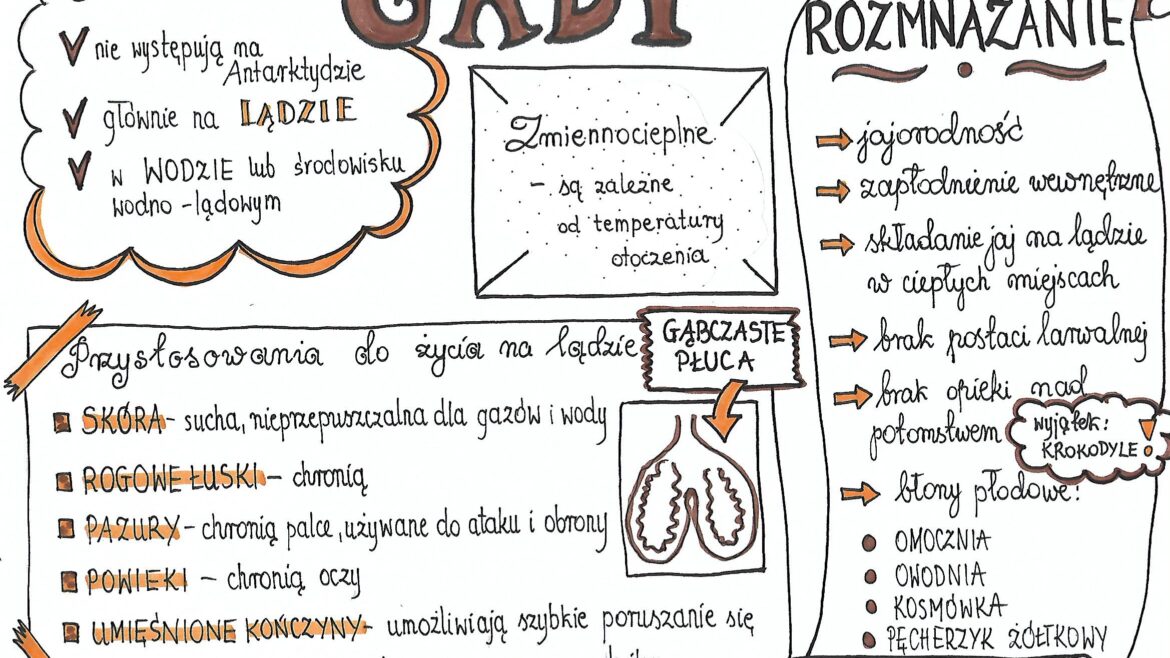 GADY
nie występują na
Antarktydzie
głównie na LĄDZIE
w WODZIE lub środowisku
wodno-lądowym
Zmiennocieplne
- są zależne
od temperatury
otoczenia
Przystosowania do życia na lądzie
SKÓRA - sucha, nieprzepuszczalna dla gazów i wody
ROGOWE ŁUSKI - chronią
PAZURY - chronią palce, używane do ataku i obrony
POWIEKI - chronią oczy
UMIĘŚNIONE KOŃCZYNY - umożliwiają szybkie poruszanie się
GĄBCZASTE
PŁUCA
ROZMNAŻANIE
jajorodność
zapłodnienie wewnętrzne
składanie jaj na lądzie
w ciepłych miejscach
brak postaci larwalnej
brak opieki nad
potomstwem
wyjątek:
KROKODYLE!
błony płodowe:
OMOCZNIA
OWODNIA
KOSMÓWKA
PĘCHERZYK ŻÓŁTKOWY